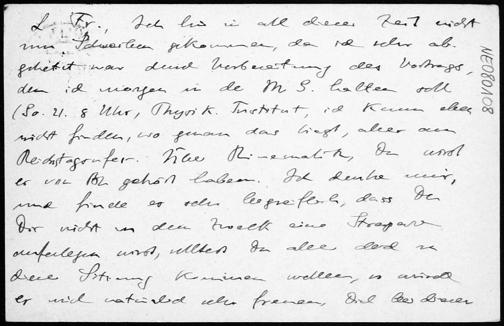 L. Fr., Ich bin in all dieser Zeit nicht
zum Schreiben gekommen, da ich sehr ab-
gehetzt war durch Vorbereitung des Vortrags,
den ich morgen in der M. G. halten soll
(So. 21. 8 Uhr, Physik. Institut, ich kann eben
nicht finden, wo genau das liegt, aber am
Reichstagsufer. Über Kinematik, Du wirst
es von gehört haben. Ich denke mir,
und finde es sehr begreiflich, dass Du
Dir nicht zu dem Zweck eine Strapaze
auferlegen wirst, solltest Du aber doch zu
dieser Sitzung kommen wollen, so würde
es mich natürlich sehr freuen. bei dieser
NE080108